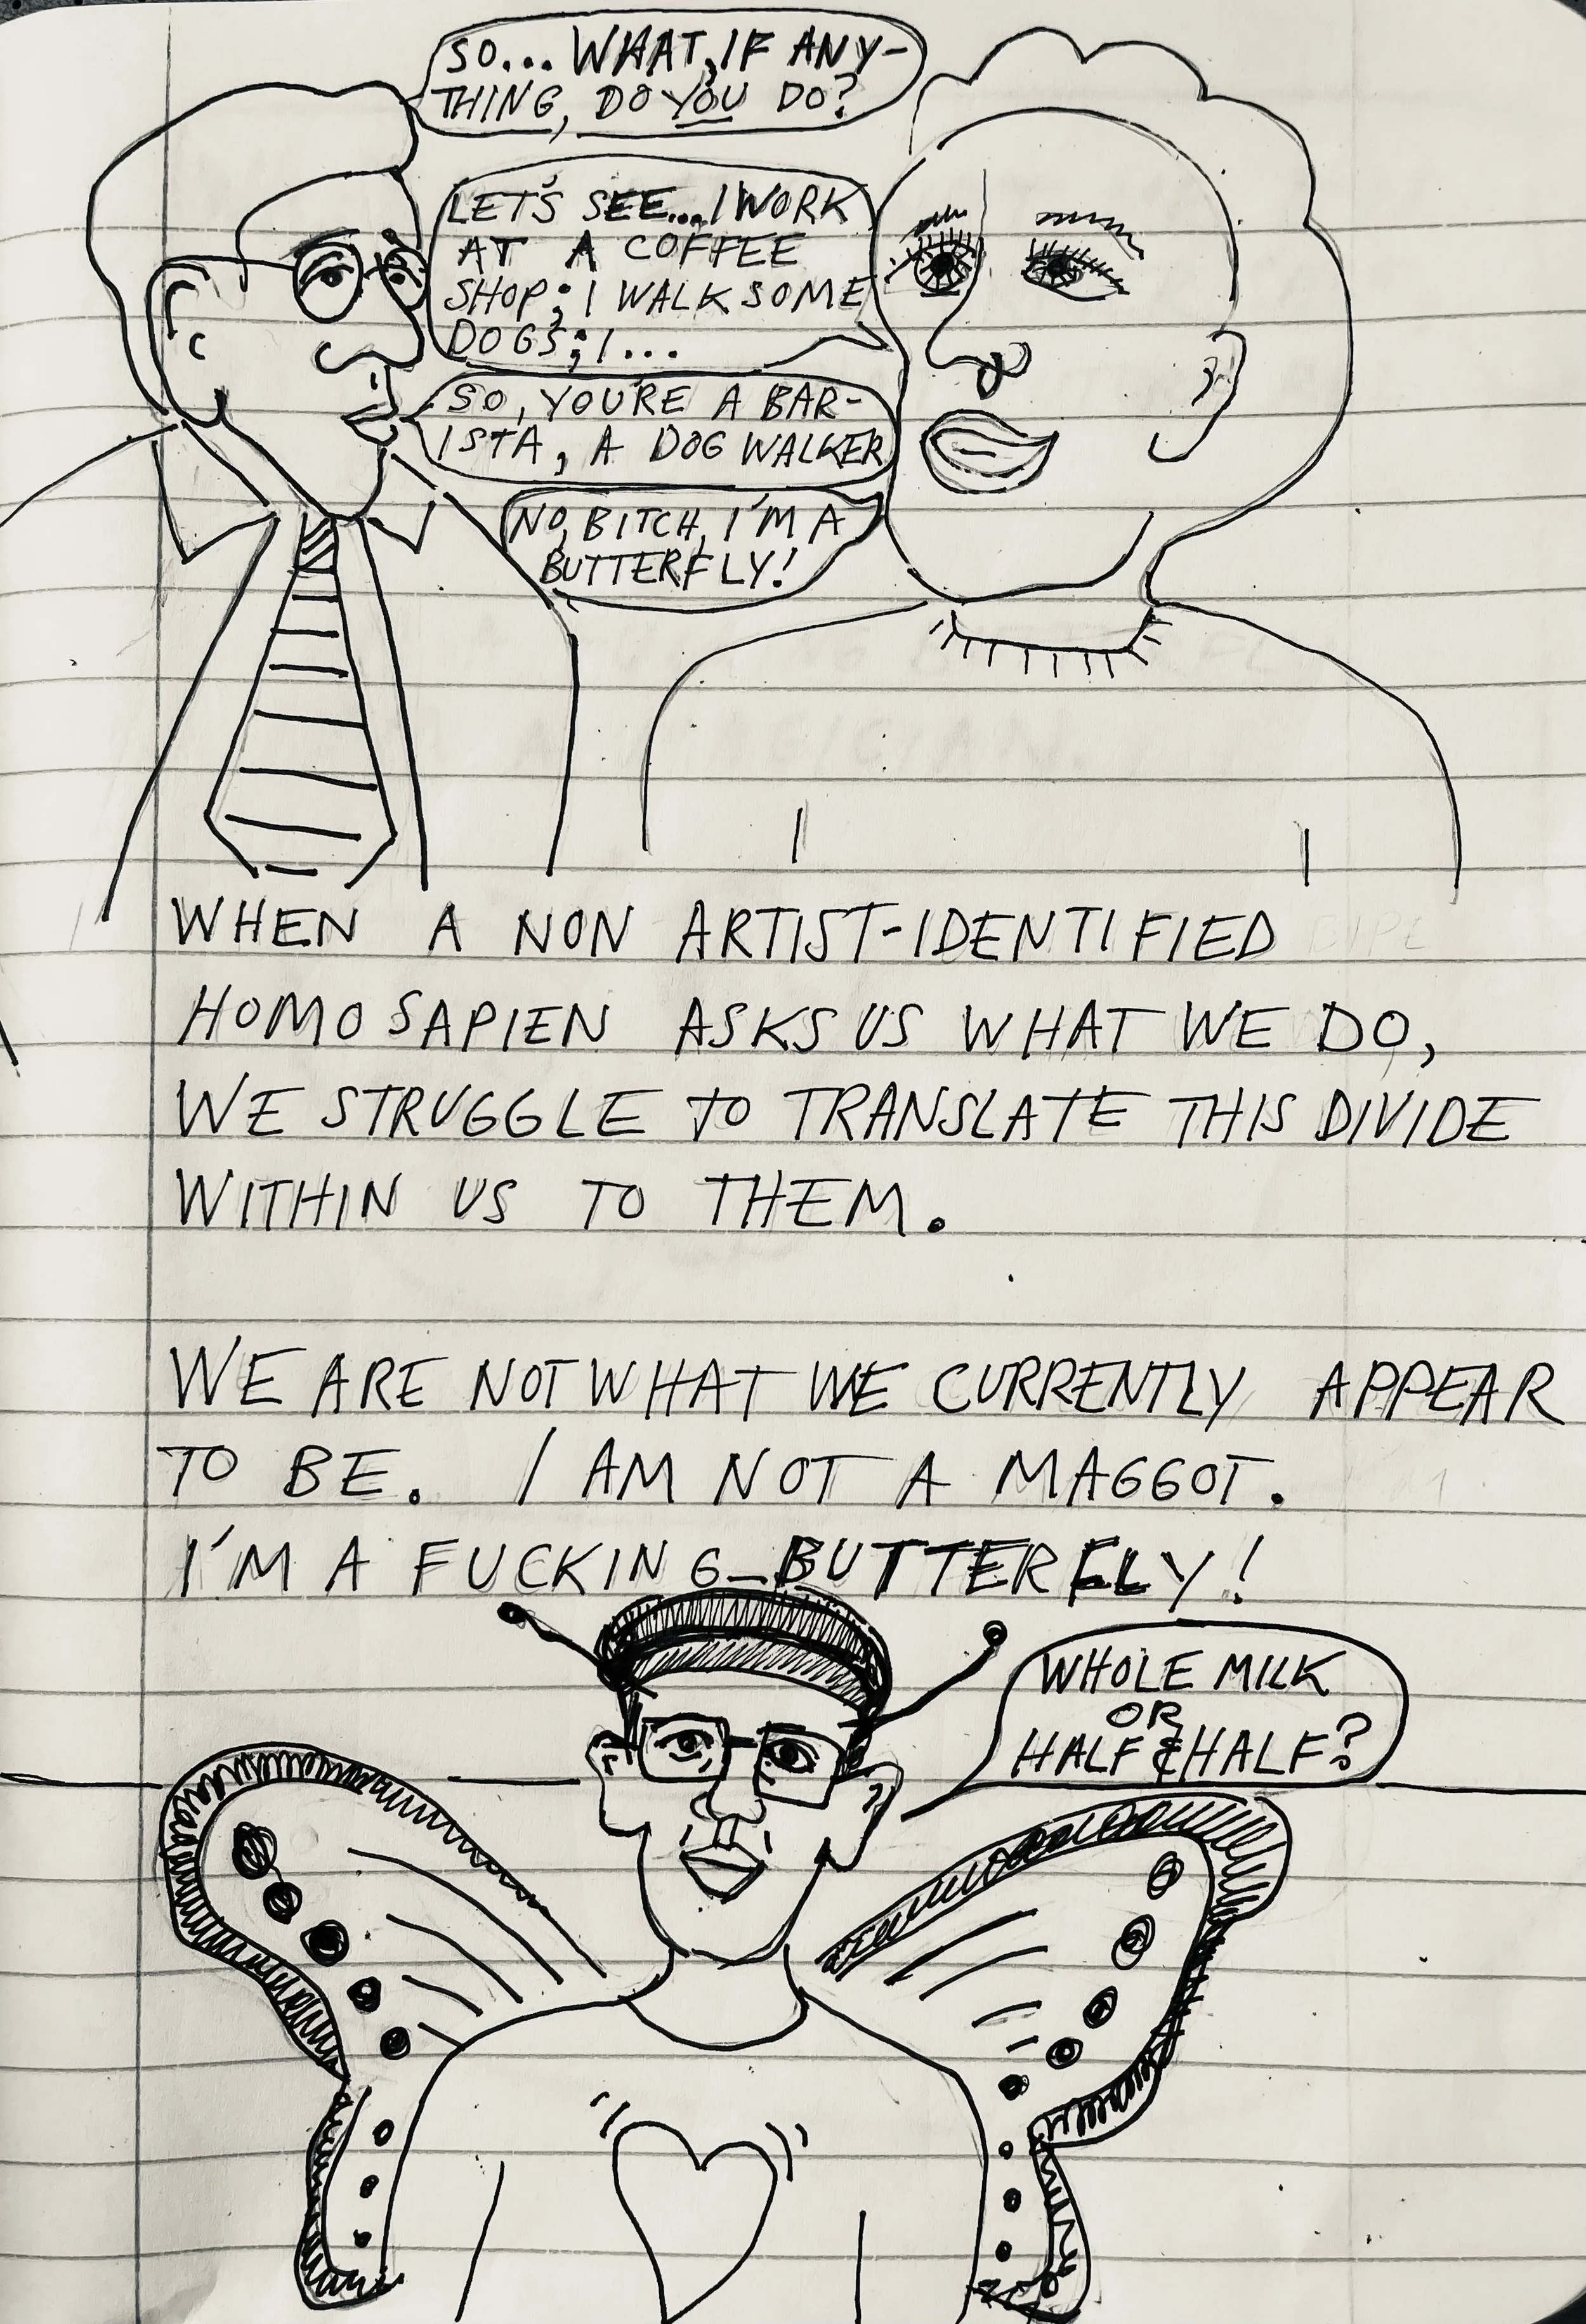 SO... WHAT, IF ANY-
THING, DO YOU DO?
LET'S SEE... I WORK
AT A COFFEE
SHOP; I WALK SOME
DOGS; I...
SO, YOU'RE A BAR-
ISTA, A DOG WALKER
NO, BITCH, I'M A
BUTTERFLY!
WHEN A NON ARTIST-IDENTIFIED
HOMO SAPIEN ASKS US WHAT WE DO,
WE STRUGGLE TO TRANSLATE THIS DIVIDE
WITHIN US TO THEM.
WE ARE NOT WHAT WE CURRENTLY APPEAR
TO BE. I AM NOT A MAGGOT.
I'M A FUCKING BUTTERFLY!
WHOLE MILK
OR
HALF & HALF?